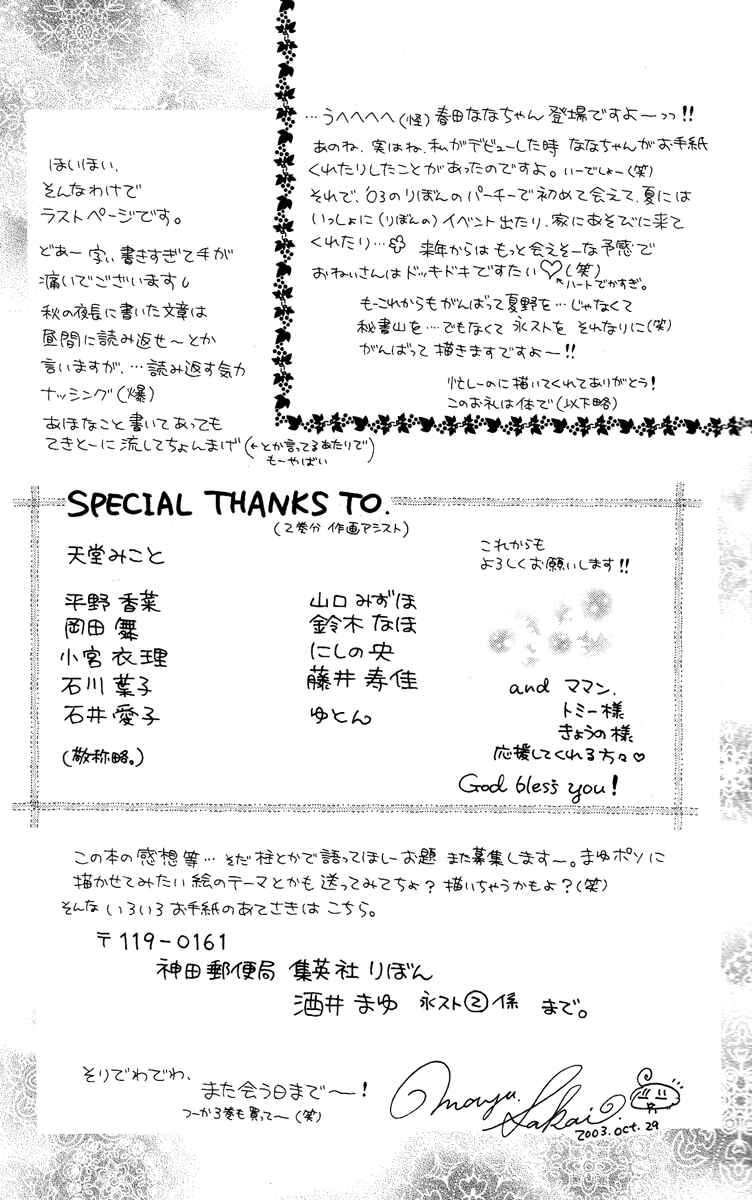 …うへへへへ(怪)春田ななちゃん登場ですよーっっ!!
あのね、実はね、私がデビューした時 ななちゃんがお手紙
くれたりしたことがあったのですよ。いーでしょー(笑)
それで、'03のりぼんのパーチーで初めて会えて、夏には
いっしょに(りぼんの)イベント出たり、家にあそびに来て
くれたり… 来年からは もっと会えそーな予感で
おねいさんはドッキドキですたい♡(笑)
ハートでかすぎ。
もーこれからもがんばって夏野を…じゃなくて
秘書山を…でもなくて 永ストを それなりに(笑)
がんばって 描きますですよー!!
忙しーのに描いてくれてありがとう!
このお礼は体で(以下略)
ほいほい、
そんなわけで
ラストページです。
どあー 字ぃ書きすぎて手が
痛いでございます
秋の夜長に書いた文章は
昼間に読み返せ~とか
言いますが、…読み返す気力
ナッシング(爆)
あほなこと書いてあっても
てきとーに流してちょんまげ(←とか言ってるあたりで
もーやばい)
SPECIAL THANKS TO.
(2巻分 作画アシスト)
天堂みこと
平野 香菜
岡田 舞
小宮 衣理
石川 葉子
石井 愛子
(敬称略。)
山口 みずほ
鈴木 なほ
にしの 央
藤井 寿佳
ゆとん
これからも
よろしくお願いします!!
and ママン、
トミー様
きょうの様
応援してくれる方々♡
God bless you!
この本の感想等… そだ 柱とかで語ってほしーお題 また募集します~。まゆポンに
描かせてみたい絵のテーマとかも 送ってみてちょ? 描いちゃうかもよ?(笑)
そんな いろいろ お手紙のあてさきは こちら。
〒119-0161
神田郵便局 集英社 りぼん
酒井 まゆ 永スト②係 まで。
そりでわでわ、
また会う日まで~!
つーか3巻も買って~(笑)
Mayu. Sakai.
2003.oct.29